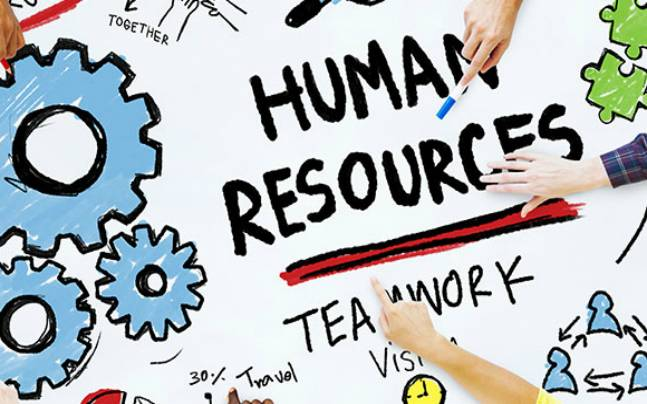 TOGETHER
HUMAN
RESOURCES
TEAMWORK
Vision
30% Travel